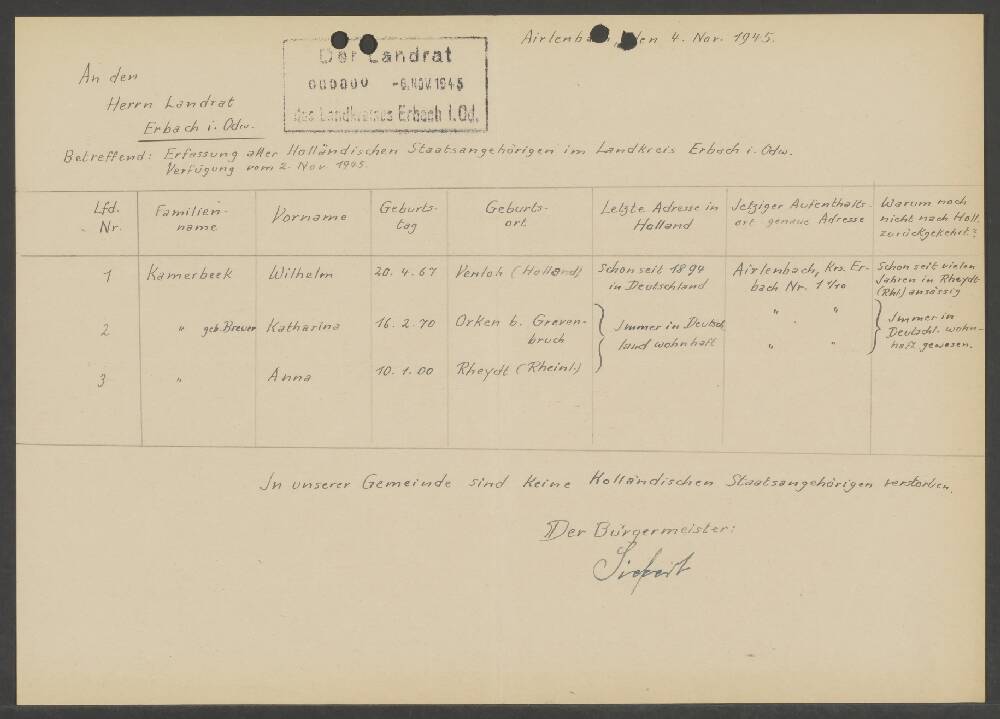 Airlenbach, den 4. Nov. 1945.
Der Landrat
-6. NOV. 1945
des Landkreises Erbach i. Od.
An den
Herrn Landrat
Erbach i. Odw.
Betreffend: Erfassung aller Holländischen Staatsangehörigen im Landkreis Erbach i. Odw.
Verfügung vom 2. Nov 1945.
Lfd. Nr. Familien-name Vorname Geburts-tag Geburts-ort Letzte Adresse in Holland Jetziger Aufenthalts-ort genaue Adresse Warum noch nicht nach Holl. zurückgekehrt?
1 Kamerbeek Wilhelm 20. 4. 67 Venloh (Holland) Schon seit 1894 in Deutschland Airlenbach, Krs. Er-bach Nr. Schon seit vielen Jahren in Rheydt (Rhl.) ansässig
2 " geb. Breuer Katharina 16. 2. 70 Orken b. Greven-bruch Immer in Deutsch land wohnhaft " " Immer in Deutschl. wohn-haft gewesen.
3 " Anna 10. 1. 00 Rheydt (Rheinl.) " "
In unserer Gemeinde sind keine Holländischen Staatsangehörigen verstorben.
Der Bürgermeister: